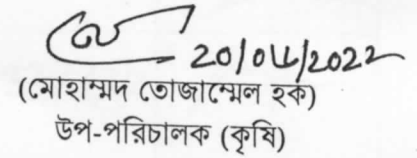 20/04/2022
(মোহাম্মদ তোজাম্মেল হক)
উপ-পরিচালক (কৃষি)